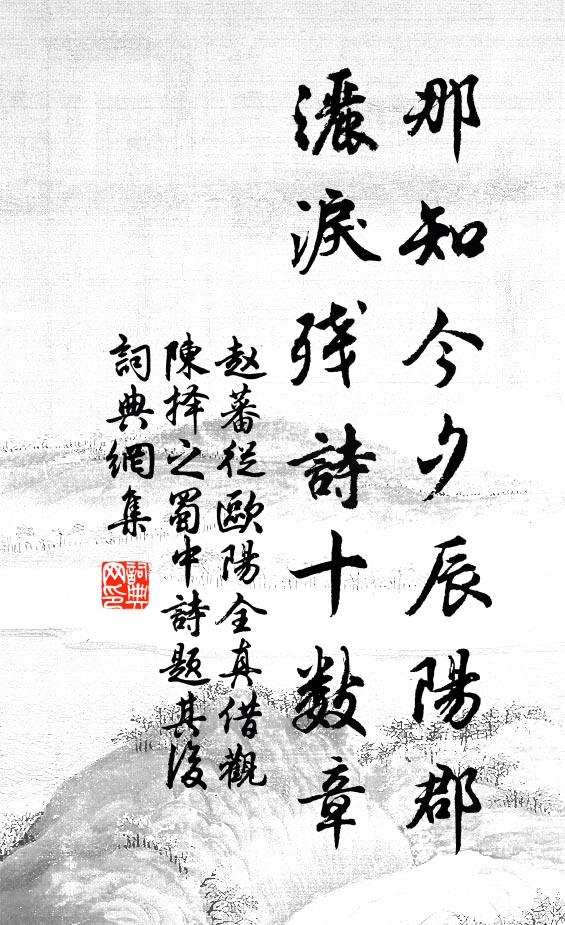 那知今夕辰陽郡
灑淚殘詩十數章
赵蕃從歐陽全真借觀
陳择之蜀中詩題其後
詞典網集
詞典
网印